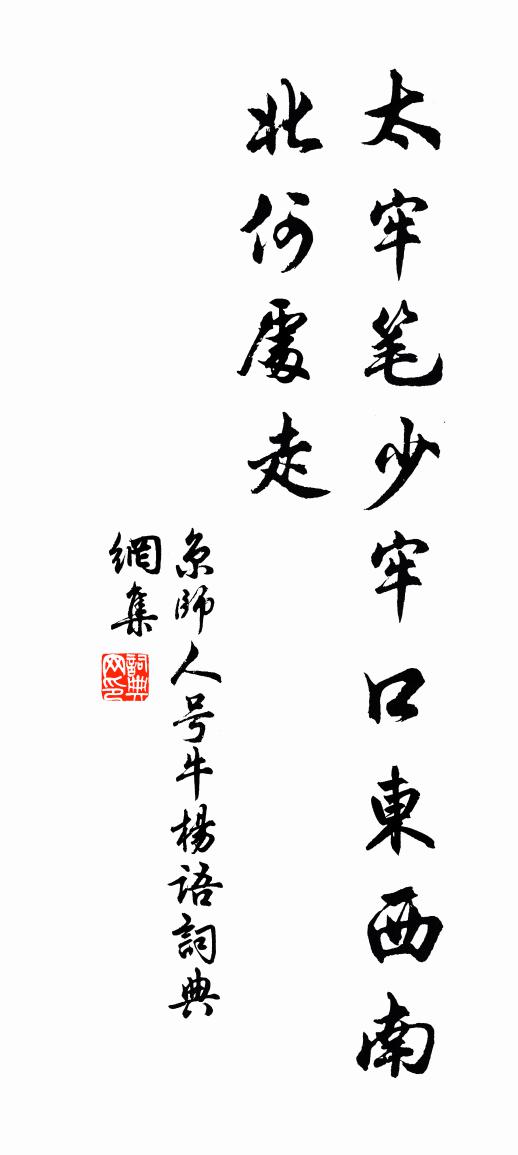 太牢笔少牢口東西南
北何處走
京師人号牛楊語詞典
網集
詞典
网印